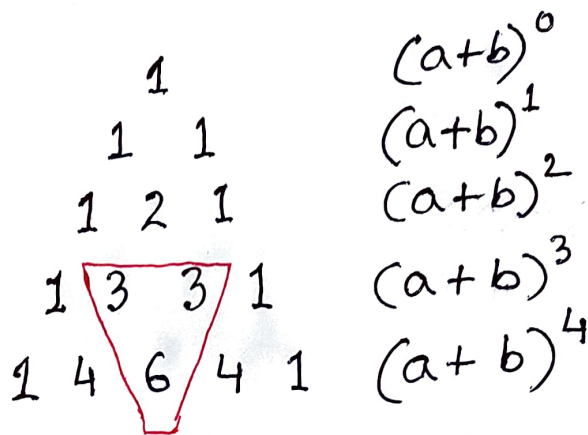 1 (a+b)^0
1 1 (a+b)^1
1 2 1 (a+b)^2
1 3 3 1 (a+b)^3
1 4 6 4 1 (a+b)^4